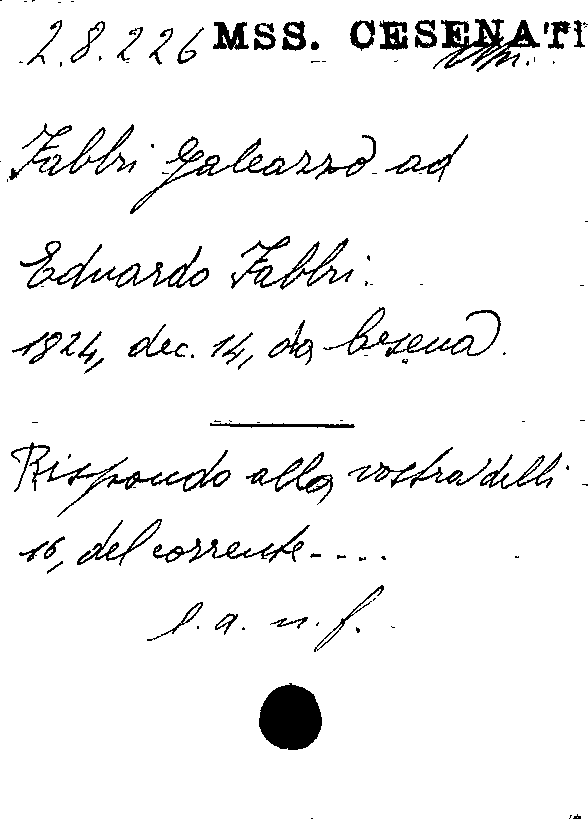 2.8.226 MSS. CESENATI
Fabbri Galeazzo ad
Eduardo Fabbri.
1824, dec. 14, da Cesena.
Rispondo alla vostra delli
16, del corrente....
l. a. n. f.